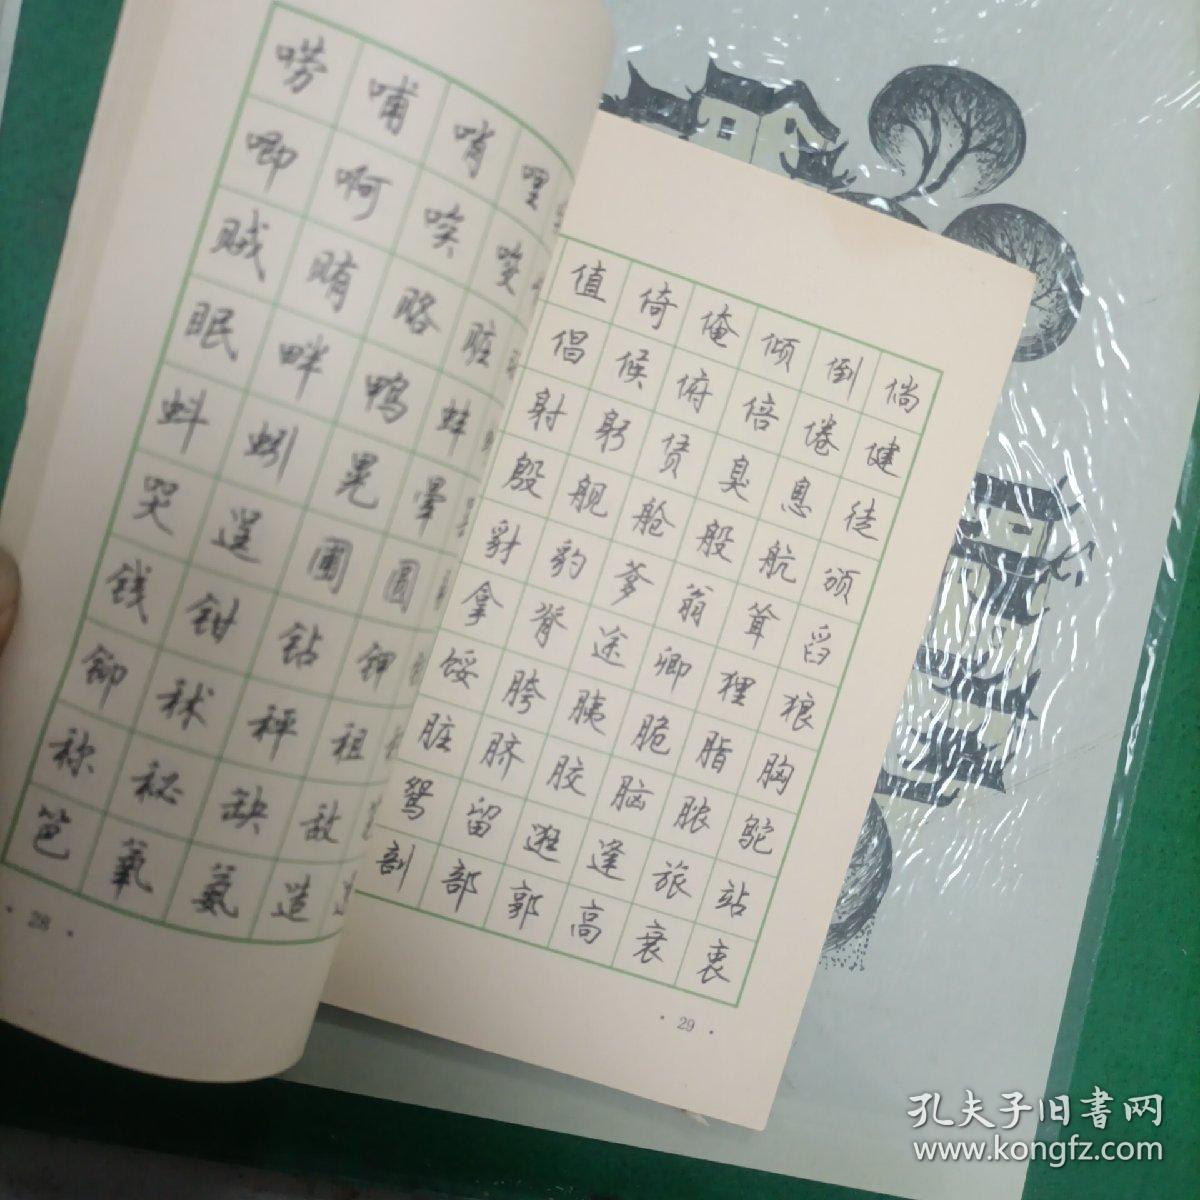 唠哺哨哩
唧啊唉
贼贿赂脏
眠畔鸭蛙
蚌蚓晃晕
哭逞圃圆
钱钳钻钾
铆秫秤租
称秘缺敌
笆氧氨造
· 28 ·
值倚俺倾倒倘
倡候俯倍倦健
射躬赁臭息徒
殷舰舱般航颁
豺豹爹翁耸舀
拿脊途卿狸狼
馁胯胰脆脂胸
脏脐胶脑脓鸵
鸳留逛逢旅站
剖部郭高衰衷
· 29 ·
孔夫子旧书网
www.kongfz.com